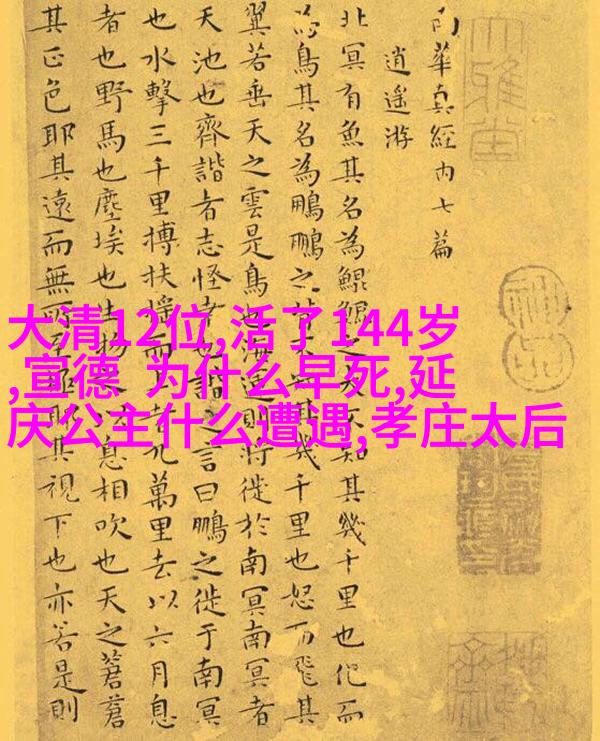 大清12位,活了144岁
,宣德 为什么早死,延
庆公主什么遭遇,孝庄太后
南華真經內七篇
逍遙游
北冥有魚其名為鯤鯤之大不知其幾千里也化而
為鳥其名為鵬鵬之背不知其幾千里也怒而飛其
翼若垂天之雲是鳥也海運則將徙於南冥南冥者
天池也齊諧者志怪者也諧之言曰鵬之徙于南冥
也水擊三千里摶扶搖而上者九萬里去以六月息
者也野馬也塵埃也生物之以息相吹也天之蒼蒼
其正色耶其遠而無所至極耶其視下也亦若是則
大雅堂
神品